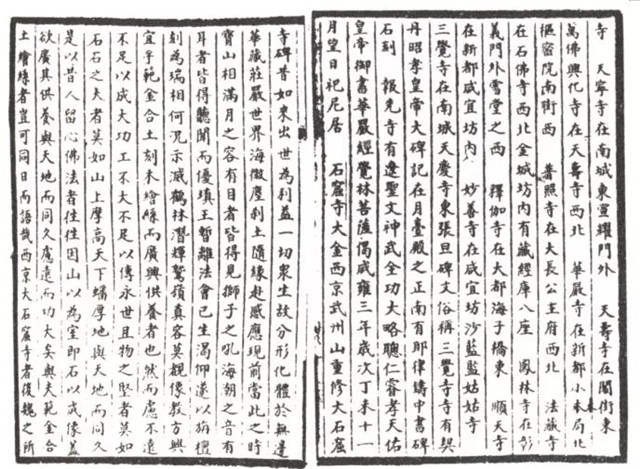 寺　天寧寺在南城東宣耀門外　天壽寺在閣街東
萬佛興化寺在天壽寺西北　華嚴寺在新都小木局北
樞密院南街西　普照寺在大長公主府西北　法藏寺
在石佛寺西北金城坊內有藏經庫八座　鳳林寺在彰
義門外雪堂之西　釋伽寺在大都海子橋東　順天寺
在新都咸宜坊內　妙善寺在咸宜坊沙藍藍姑姑寺
三覺寺在南城天慶寺東張旦碑文俗稱三覺寺寺有契
丹昭孝皇帝大碑記在月臺殿之正南有耶律鑄中書碑
石刻　報先寺有遼聖文神武全功大略聰仁睿孝天佑
皇帝御書華嚴經覺林菩薩偈咸雍三年歲次丁未十一
月望日祀尼居　石窟寺大金西京武州山重修大石窟
寺碑昔如來出世為利益一切眾生故分形化體於無邊
華藏莊嚴世界海微塵刹土隨緣赴感應現前當此之時
寶山相滿月之容有目者皆得見獅子之吼海朝之音有
耳者皆得聽聞而優填王暫離法會已生渴仰遂以栴檀
刻為瑞相何況示滅鶴林潛輝鷲嶺真容莫覩像教方興
宜乎範金合土刻木繪絲而廣興供養者也然而慮不遠
不足以成大功工不大不足以傳永世且物之堅者莫如
石石之大者莫如山上摩高天下蟠厚地與天地而同久
是以昔人留心佛法者往往因山以為室即石以成像蓋
欲廣其供養與天地而同久慮遠而功大矣與夫範金合
土繪絲者豈可同日而語哉西京大石窟寺者後魏之所